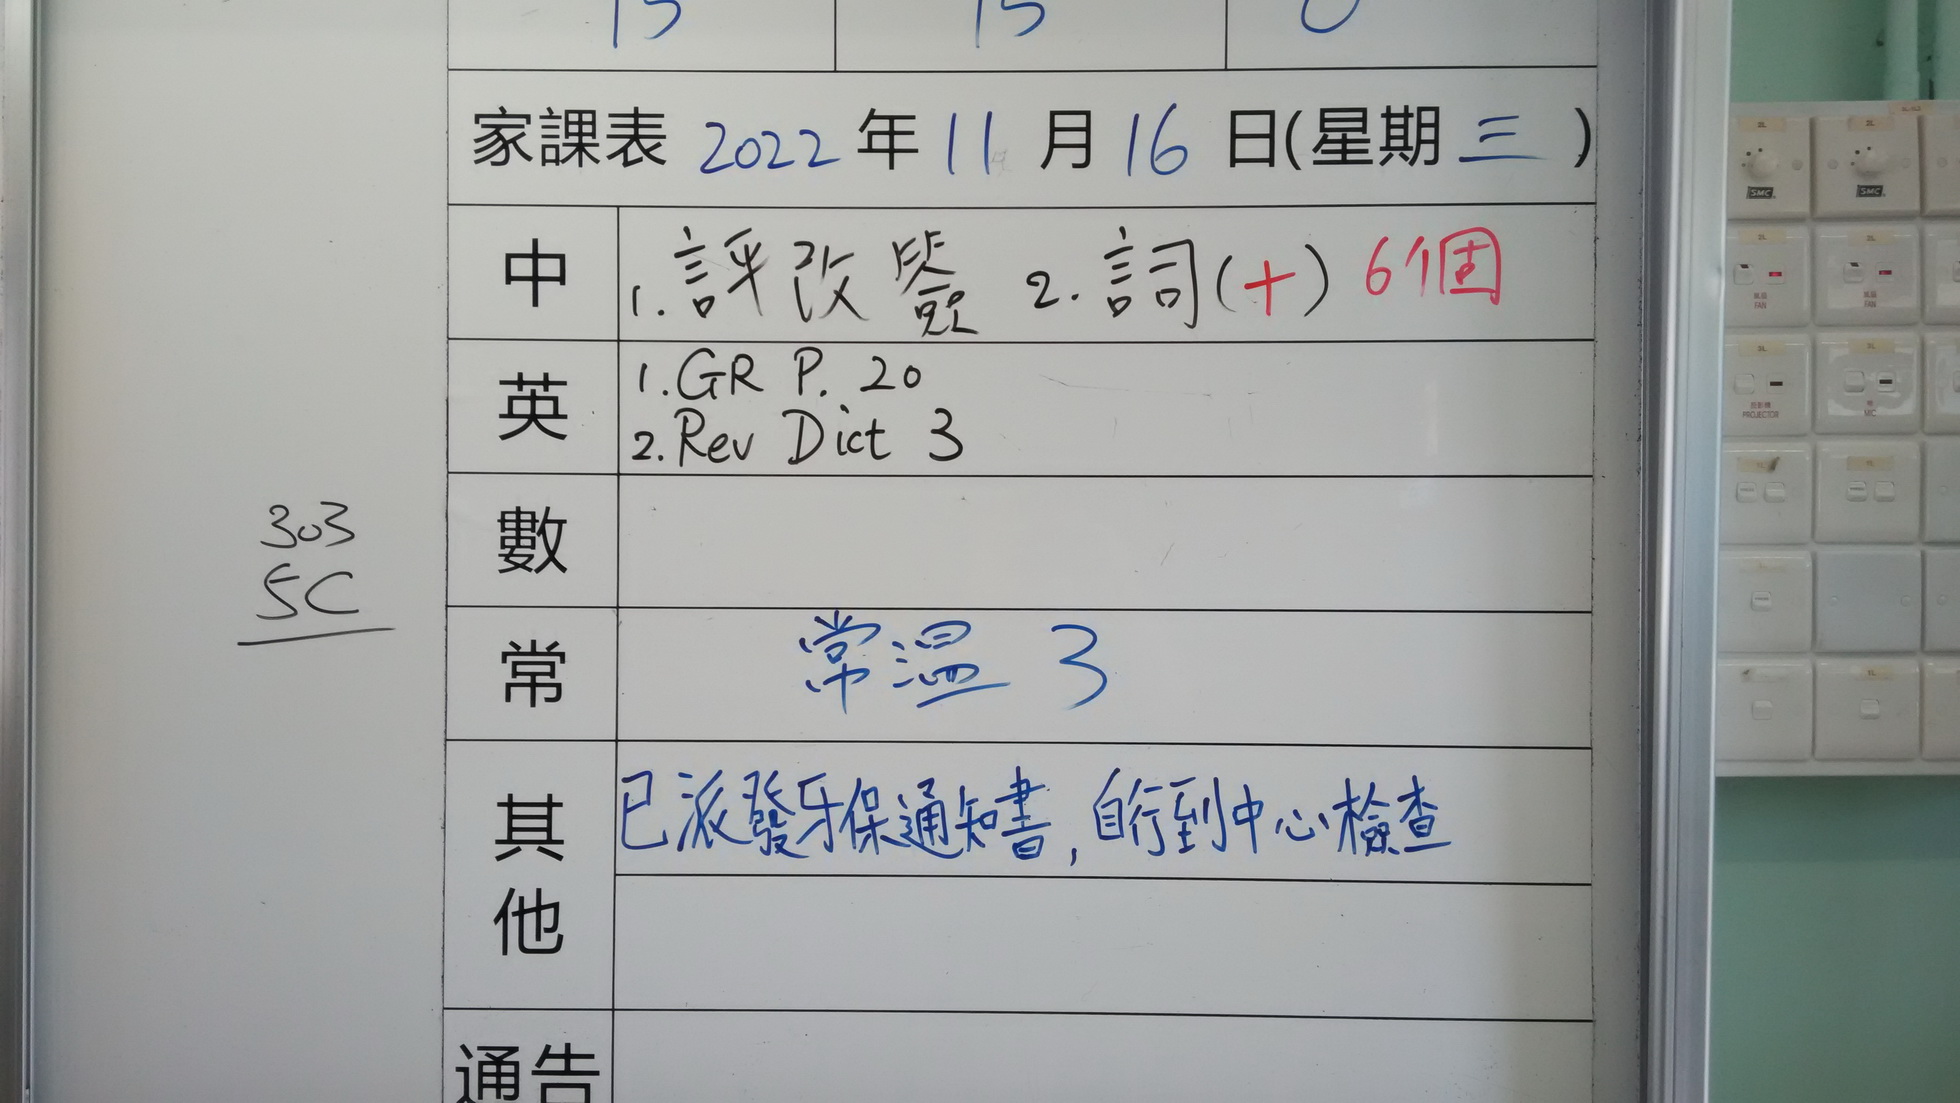 15 15 0
家課表 2022 年 11 月 16 日(星期 三 )
中 1. 評改簽 2. 詞(十) 6個
英 1. GR P. 20
2. Rev Dict 3
303
5C
數
常 常溫 3
其他 已派發牙保通知書, 自行到中心檢查
通告
SMC SMC
FAN FAN
投影機 PROJECTOR MIC